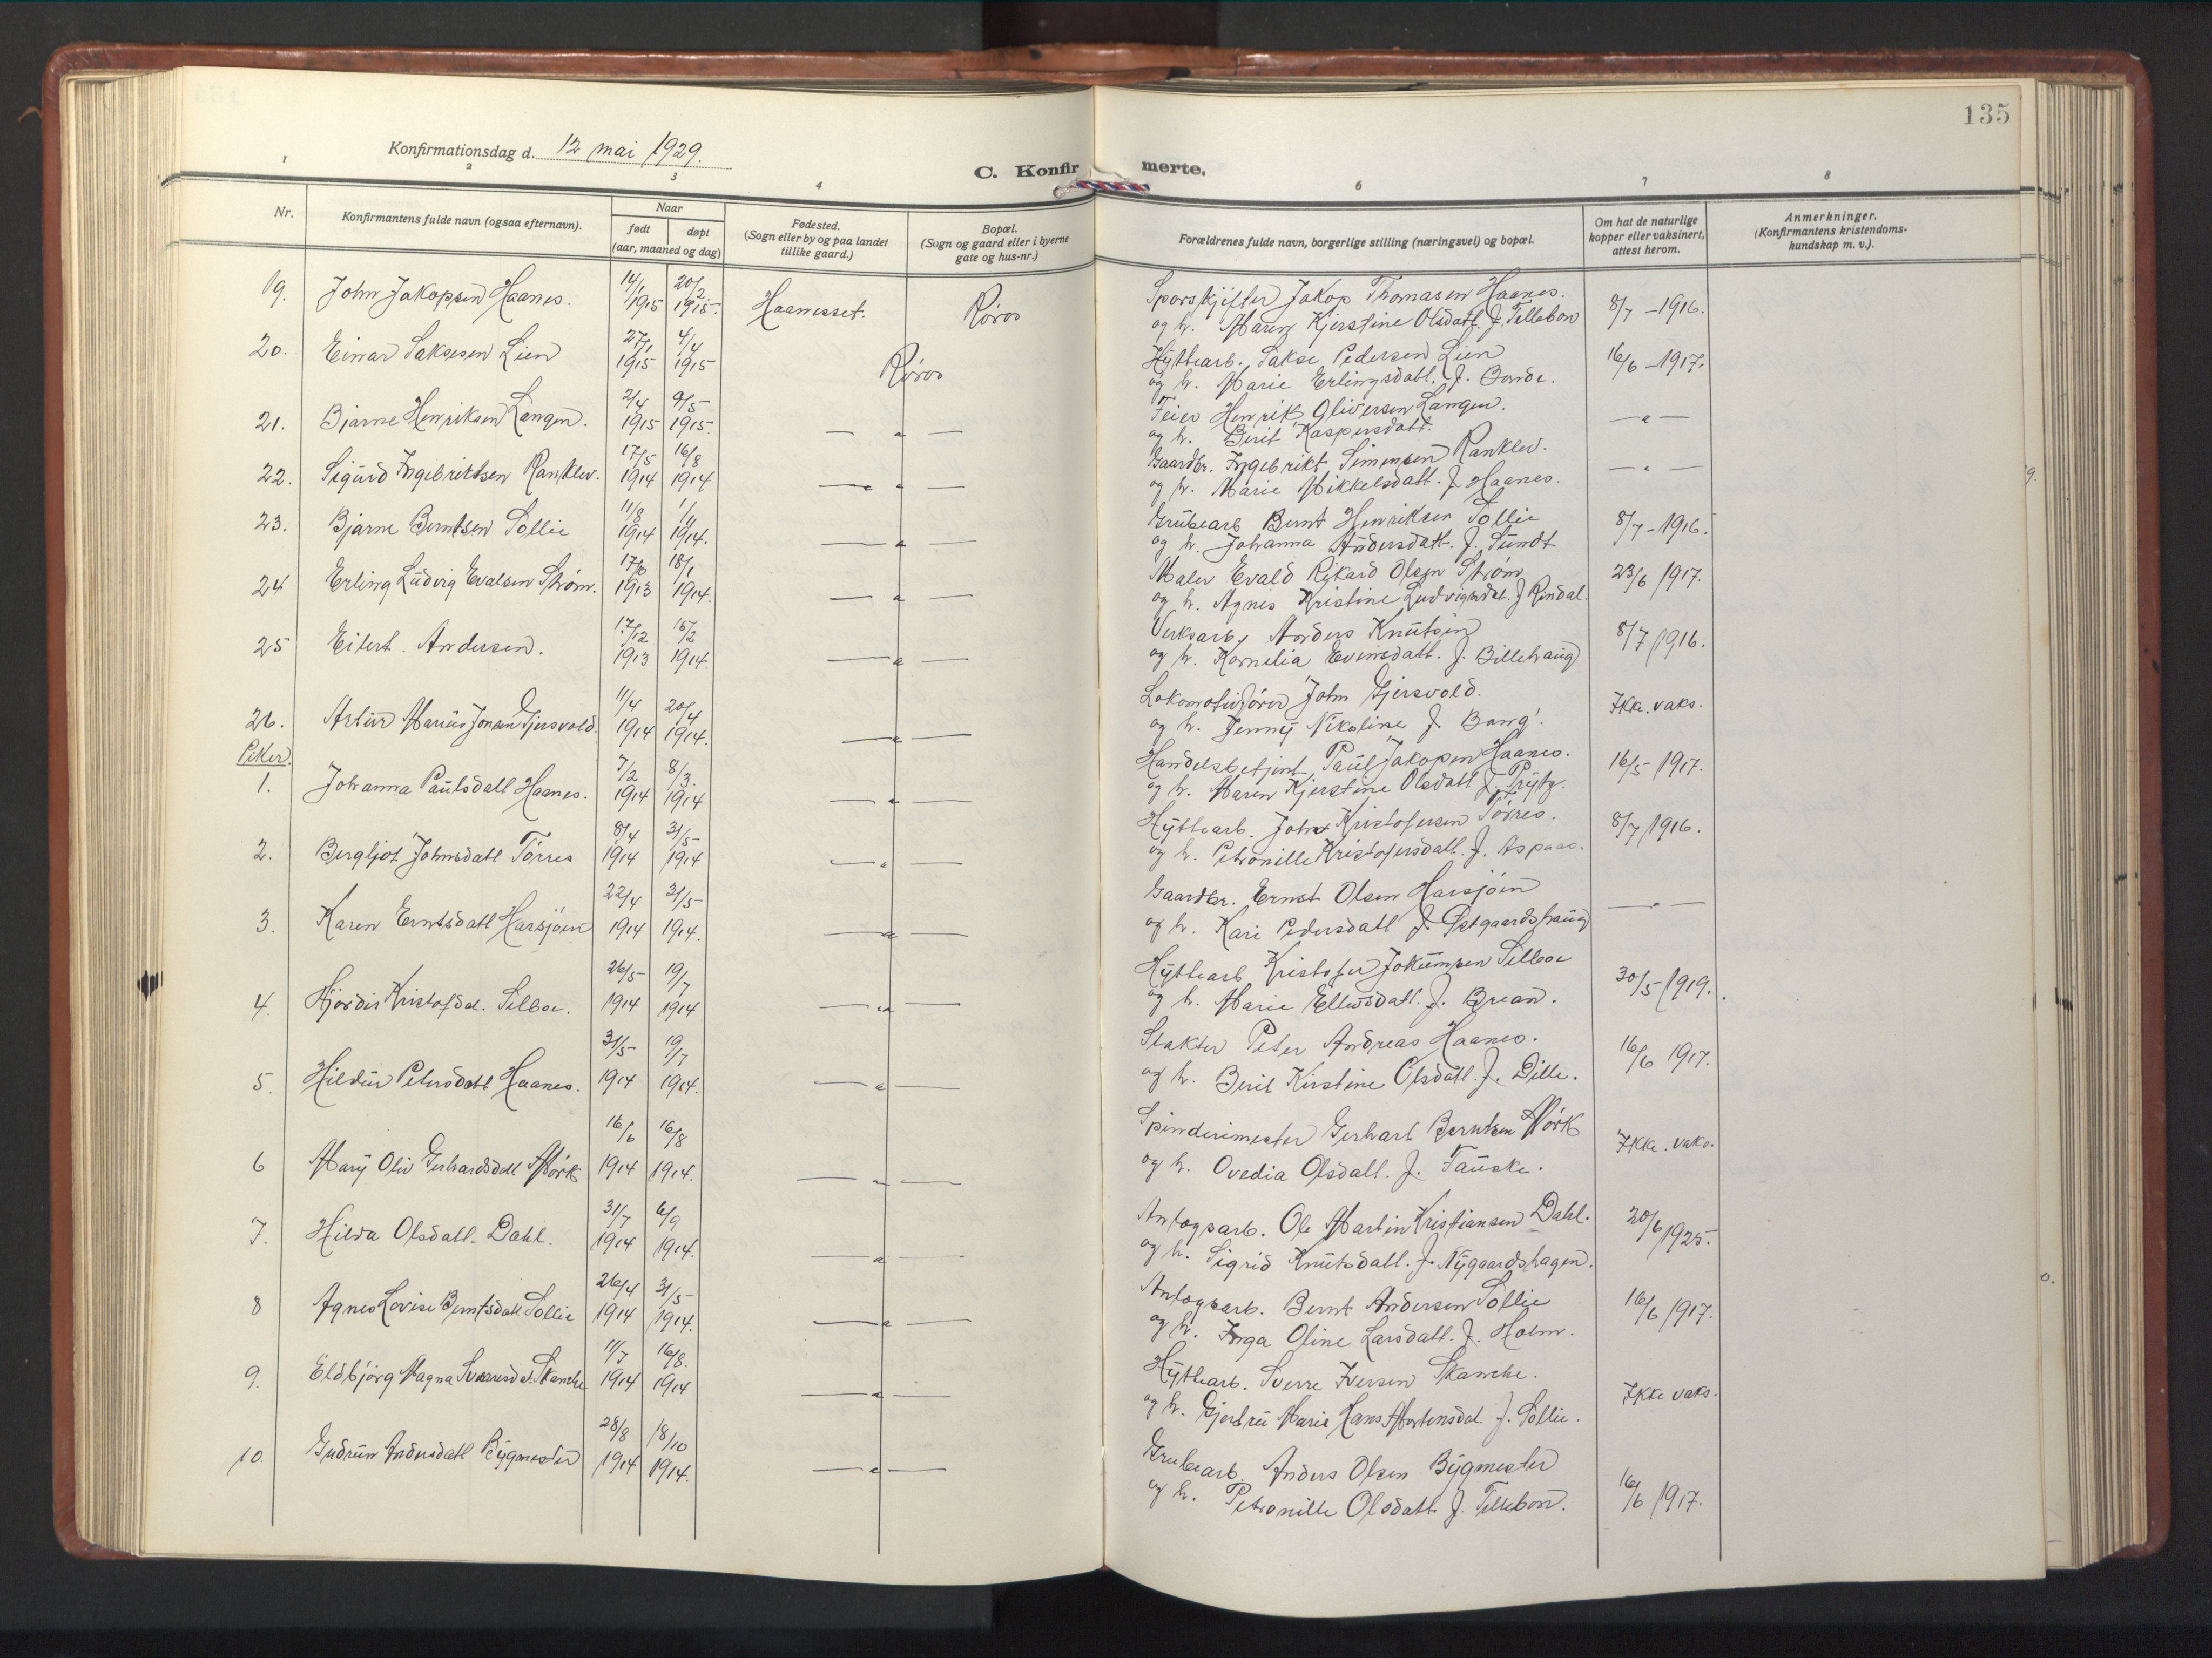 135
Konfirmationsdag d. 12 mai 1929.
C. Konfirmerte.
1 2 3 4 6 7 8
Nr.
Konfirmantens fulde navn (ogsaa efternavn).
Naar
født døpt
(aar, maaned og dag)
Fødested.
(Sogn eller by og paa landet
tillike gaard.)
Bopæl.
(Sogn og gaard eller i byerne
gate og hus-nr.)
Forældrenes fulde navn, borgerlige stilling (næringsvei) og bopæl.
Om hat de naturlige
kopper eller vaksinert,
attest herom.
Anmerkninger.
(Konfirmantens kristendoms-
kundskap m. v.).
19. John Jakopsen Haanes. 14/1 1915 20/2 1915. Haanesset. Røros
Jakop Thomasen Haanes. 8/7 - 1916.
og h. Maren Kjerstine Olsdatt. f. Tillebon
20. Einar Saksesen Lien 27/1 1915 4/4 1915 Røros
Hyttearb. Sakse Pedersen Lien 16/6 - 1917.
og h. Marie Erlingsdatt. f. Borde.
21. Bjarne Henriksen Langen. 2/4 1915 9/5 1915. — " —
Feier Henrik Oliversen Langen. — " —
og h. Berit Kaspersdatt.
22. Sigurd Ingebriktsen Ranklev. 17/5 1914 16/8 1914 — " —
Gaardbr. Ingebrikt Simensen Ranklev. — " —
og h. Marie Mikkelsdatt. f. Haanes.
23. Bjarne Berntsen Sollie 11/8 1914 1914. — " —
Grubearb Bernt Henriksen Sollie 8/7 - 1916.
og h. Johanna Andersdatt. f. Sundt
24 Erling Ludvig Evalsen Strøm. 17/10 1913 18/1 1914. — " —
Maler Evald Rikard Olsen Strøm 23/6 1917.
og h. Agnes Kristine Ludvigsdat. f Rindal.
25 Eilert Andersen. 17/12 1913 15/2 1914. — " —
Verksarb. Anders Knutsen 8/7 1916.
og h. Kornelia Evensdatt. f. Billehaug
26. Artur Marius Jonsen Gjersvold. 11/4 1914 20/4 1914. — " —
Lokomotivfører John Gjersvold. Ikke. vaks.
og h. Jenny Nikoline f. Bang.
Piker.
1. Johanna Paulsdatt Haanes. 7/2 1914 8/3. 1914 — " —
Handelsbetjent Paul Jakopsen Haanes. 16/5 1917.
og h. Maren Kjerstine Olsdatt f. Prytz.
2. Bergljot Johnsdatt Tørres 8/4 1914 31/5 1914 — " —
Hyttearb. John Kristofersen Tørres. 8/7 1916.
og h. Petronille Kristofersdatt. f. Aspaas.
3. Karen Erntsdatt Harsjøen 22/4 1914 31/5 1914. — " —
Gaardbr. Ernst Olsen Harsjøen — " —
og h. Kari Pedersdatt f. Østgaardshaug
4. Hjørdis Kristofsdat. Silboe. 26/5 1914 19/7 1914 — " —
Hyttearb Kristofer Jokumsen Silboe 30/5 1919.
og h. Marie Ellevsdatt. f. Brean.
5. Hildur Petersdatt Haanes. 31/5 1914 19/7 1914. — " —
Slakter Peter Andreas Haanes. 16/6 1917.
og h. Berit Kirstine Olsdatt. f. Dille.
6 Mary Oliv Gerhardsdatt Mørk 16/6 1914 16/8 1914. — " —
Spinderimester Gerhart Berntsen Mørk Ikke. vaks.
og h. Ovedia Olsdatt. f. Fauske.
7. Hilda Olsdatt. Dahl. 31/7 1914 6/9 1914. — " —
Anlægsarb. Ole Martin Kristiansen Dahl. 20/6 1925.
og h. Sigrid Knutsdatt. f. Nygaardshagen.
8 Agnes Lovise Berntsdatt Sollie 26/4 1914 31/5 1914. — " —
Anlægsarb. Bernt Andersen Sollie 16/6 1917.
og h. Inga Oline Larsdatt. f. Holm.
9. Eldbjørg Magna Sverresdat. Skanche 11/7 1914 16/8. 1914 — " —
Hyttearb. Sverre Iversen Skanche. Ikke vaks.
og h. Gjertru Marie Hans Mortensdat. f. Sollie.
10. Gudrun Andersdatt Bygmester 28/8 1914 18/10 1914. — " —
Grubearb. Anders Olsen Bygmester 16/6 1917.
og h. Petronille Olsdatt f. Tillebon.